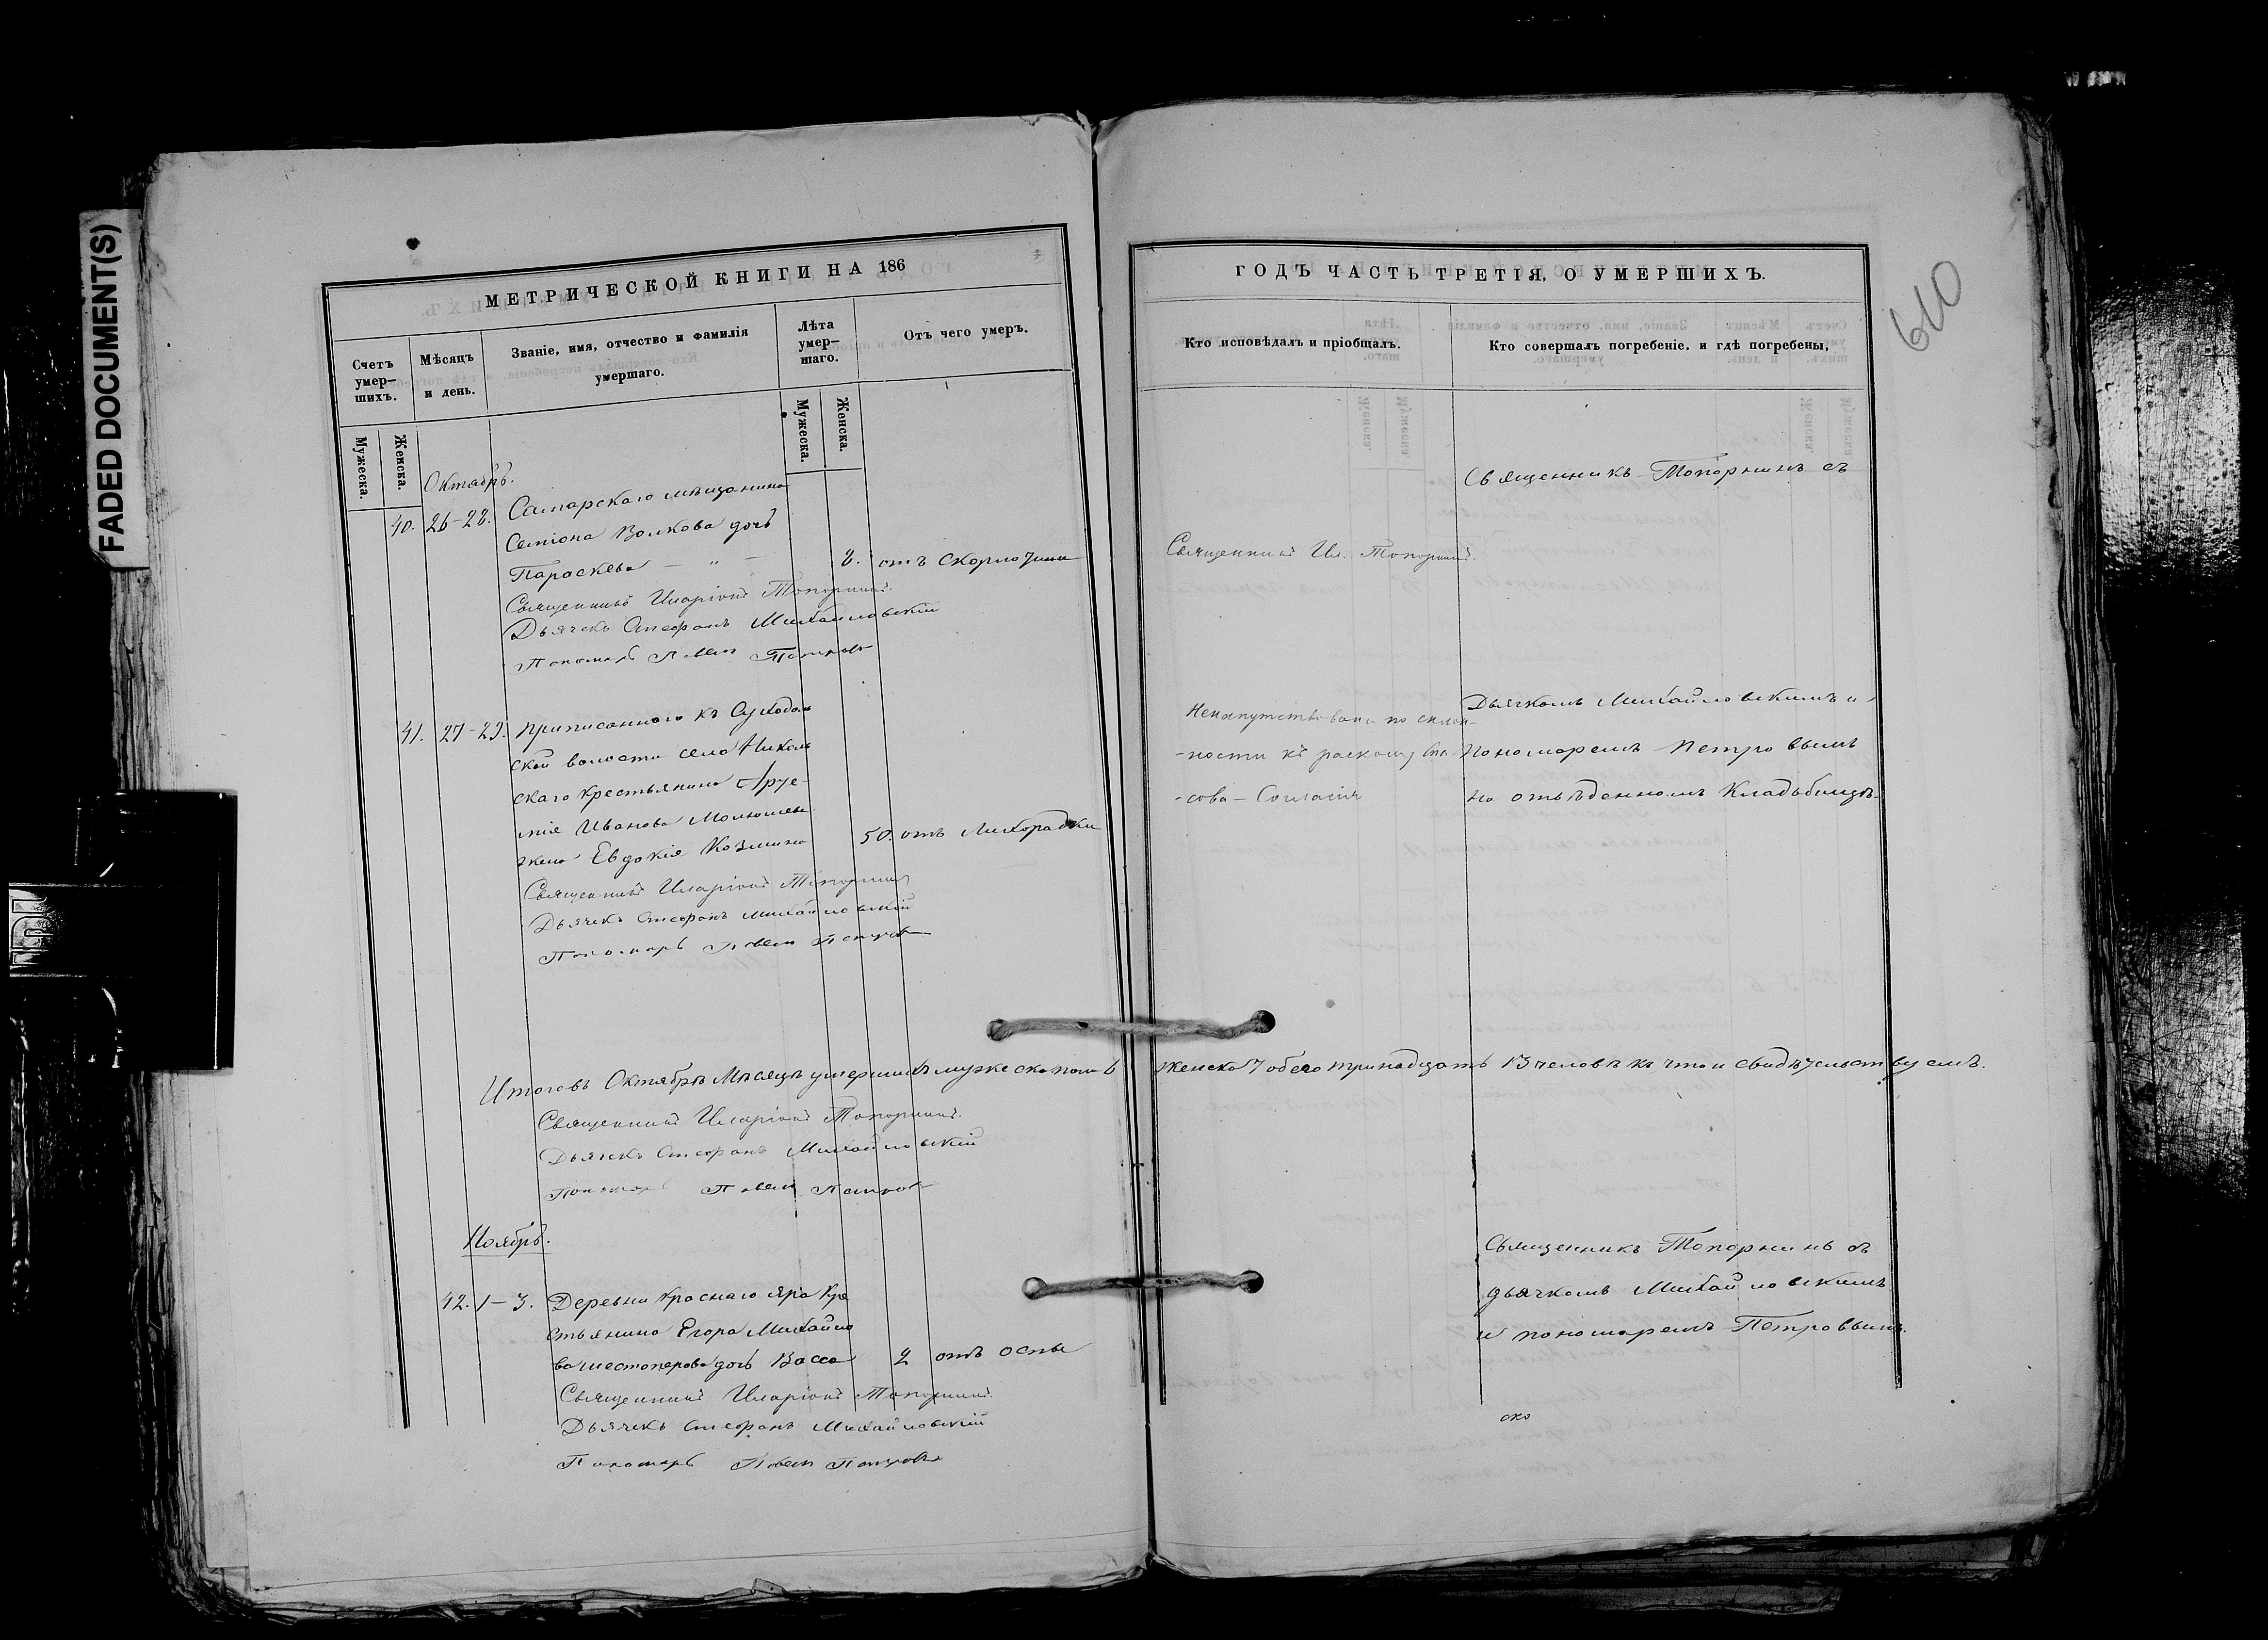 FADED DOCUMENT(S)
МЕТРИЧЕСКОЙ КНИГИ НА 186
Счетъ умер-шихъ.
Мѣсяцъ и день.
Званіе, имя, отчество и фамилія умершаго.
Лѣта умер-шаго.
Отъ чего умеръ.
Мужеска.
Женска.
Мужеска.
Женска.
Октябрь.
40. 26-28. Самарскаго мѣщанина
Семіона Волкова дочь
Параскева — " — 8. отъ скарлотины
Священникъ Иларіонъ Топорнинъ.
Дьячекъ Стефанъ Михайловскій
Пономарь Павелъ Петровъ
41. 27-29. Приписаннаго къ Суходоль
ской волости села Николь
скаго крестьянина
Иванова
жена Евдокія Козмина 50. отъ лихорадки
Священникъ Иларіонъ Топорнинъ
Дьячекъ Стефанъ Михайловскій
Пономарь Павелъ Петровъ
Итого въ Октябрѣ Мѣсяцѣ умершихъ мужеска пола 6
Священникъ Иларіонъ Топорнинъ.
Дьячекъ Стефанъ Михайловскій
Пономарь Павелъ Петровъ
Ноябрь.
42. 1-3. Деревни Краснаго Яра Кре
стьянина Егора Михайло
ва Шестоперова дочь Васса 2 отъ оспы
Священникъ Иларіонъ Топорнинъ.
Дьячекъ Стефанъ Михайловскій
Пономарь Павелъ Петровъ
ГОДЪ ЧАСТЬ ТРЕТІЯ, О УМЕРШИХЪ.
610
Кто исповѣдалъ и пріобщалъ.
Кто совершалъ погребеніе, и гдѣ погребены,
Священникъ Топорнинъ съ
Священникъ Ил. Топорнинъ.
Дьячкомъ Михайловскимъ и
Ненапутствована по склон-
-ности къ расколу Спа-
Пономаремъ Петровымъ
-сова - Согласія
на отвѣденномъ Кладбищѣ.
женска 7 обего тринадцать 13 человѣкъ что и свидѣтельствуемъ.
Священникъ Топорнинъ съ
дьячкомъ Михайловскимъ
и пономаремъ Петровымъ.